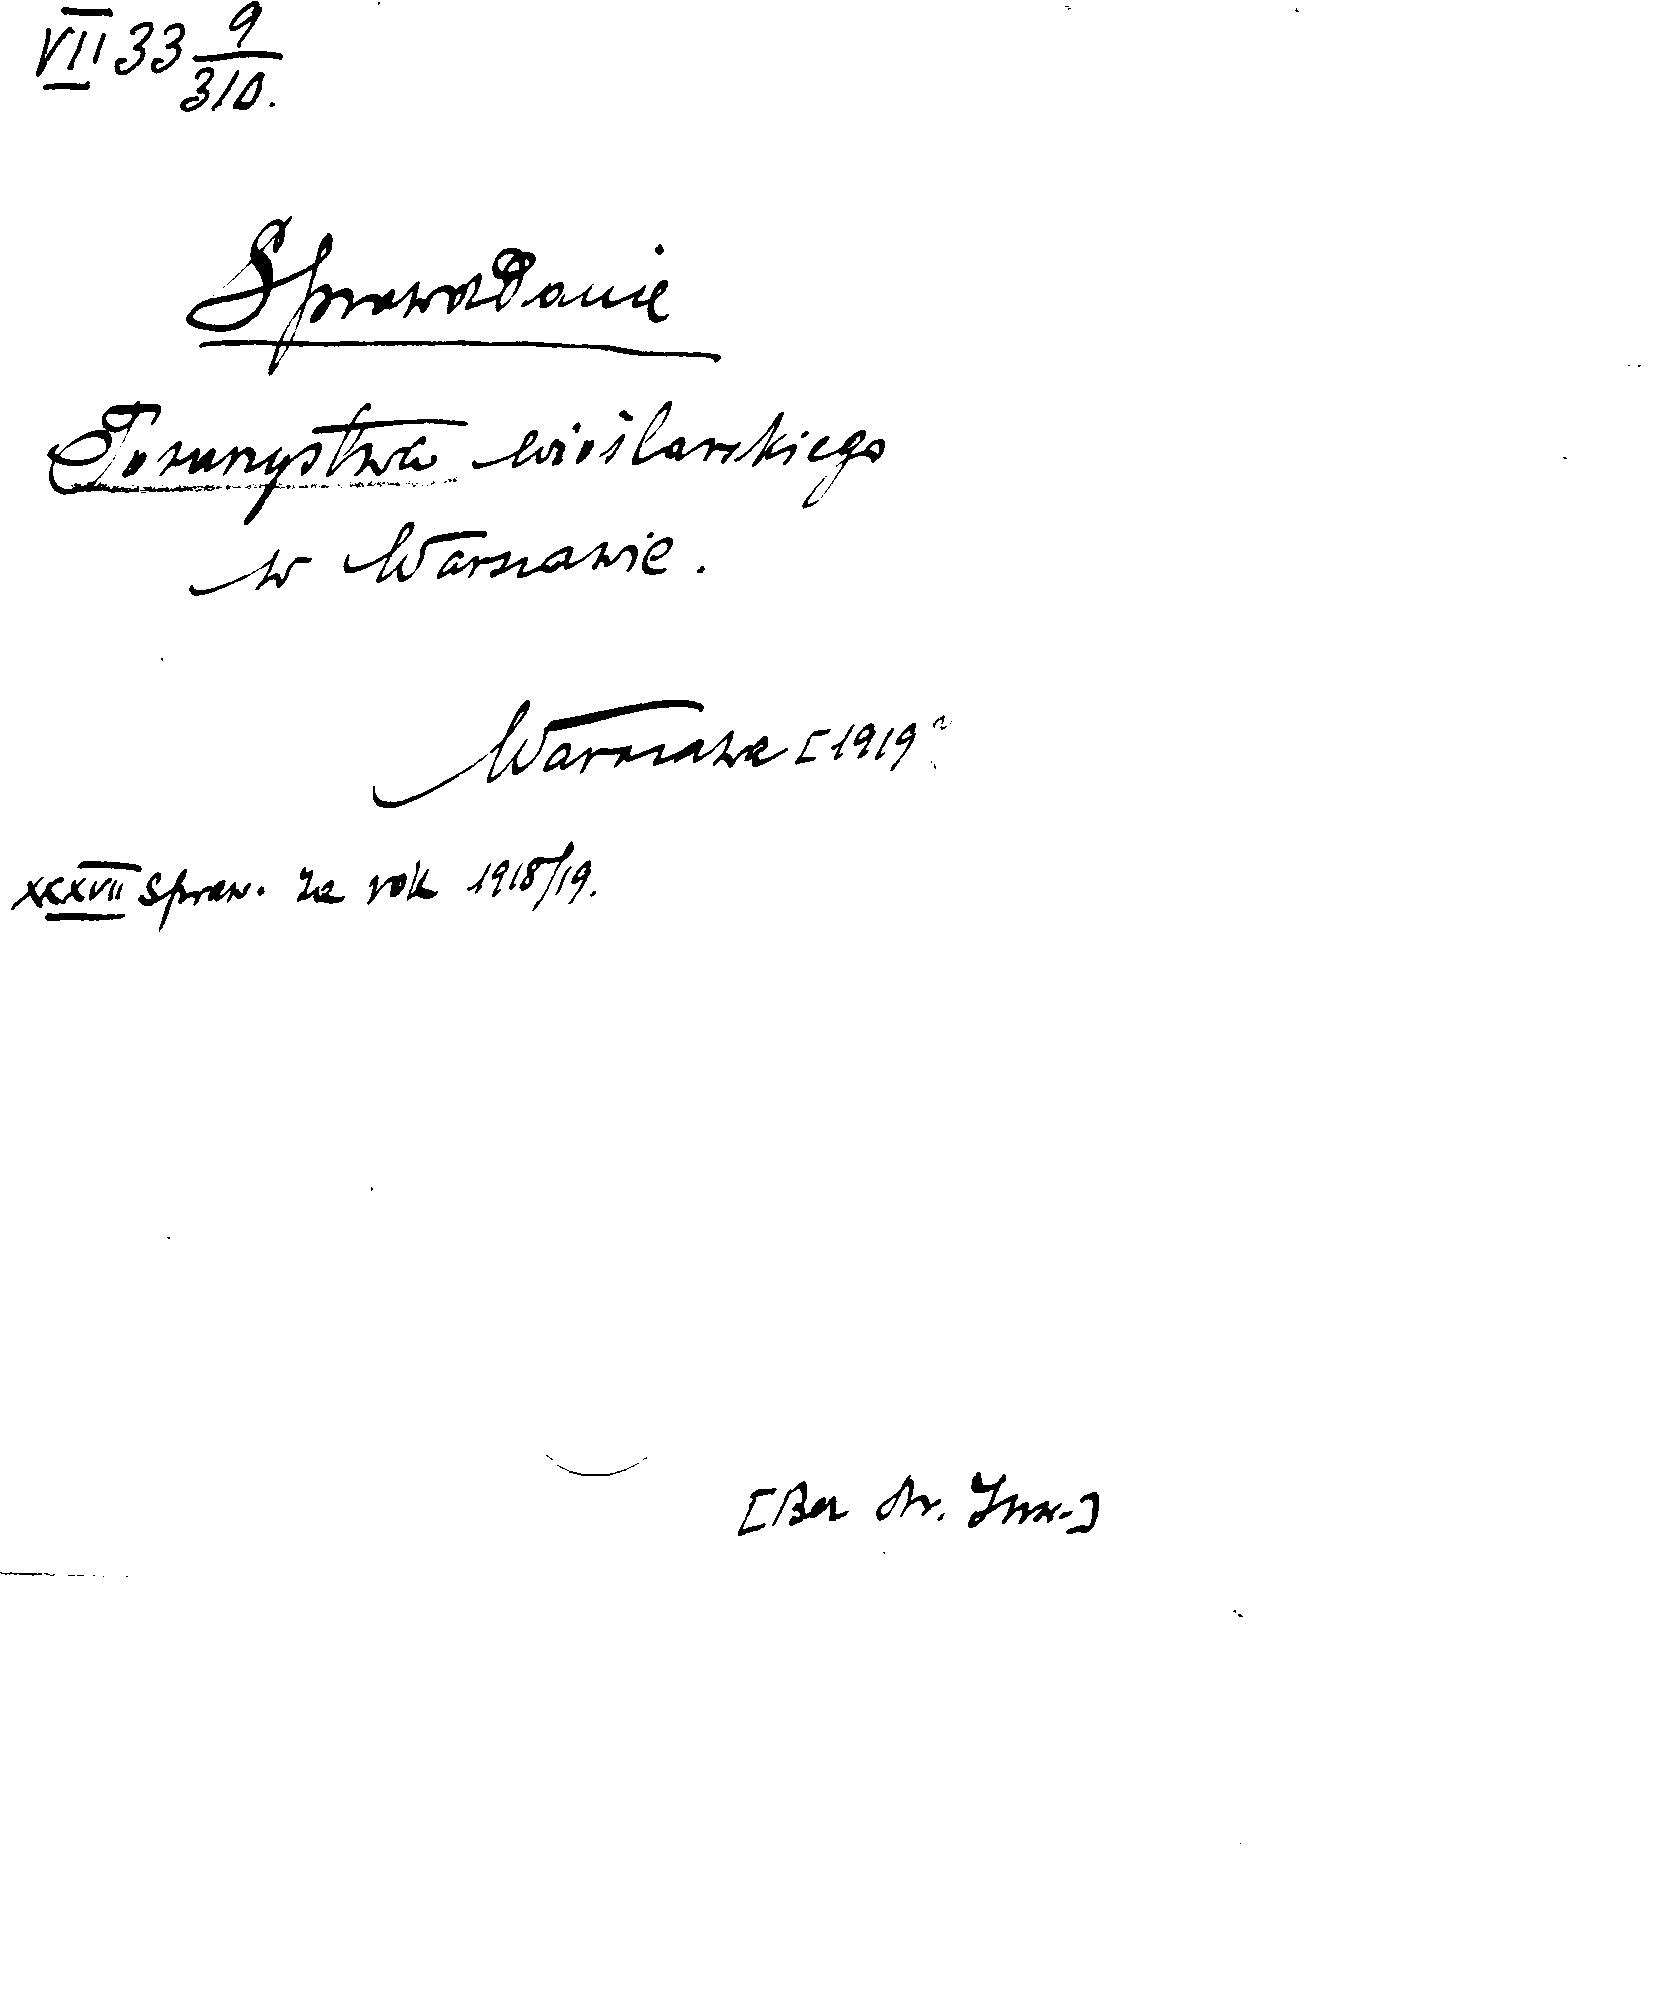 VII 33 9/310.
Sprawozdanie
Towarzystwa wioślarskiego
w Warszawie.
Warszawa [1919
XXXVII Spraw. za rok 1918/19.
[Bez dr.